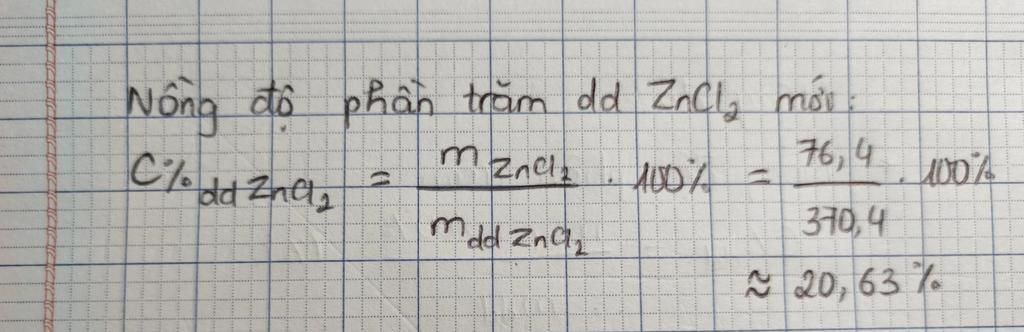 Nồng độ phần trăm dd ZnCl₂ mới:
C%dd ZnCl₂ = m ZnCl₂ / m dd ZnCl₂ . 100% = 76,4 / 370,4 . 100%
≈ 20,63 %